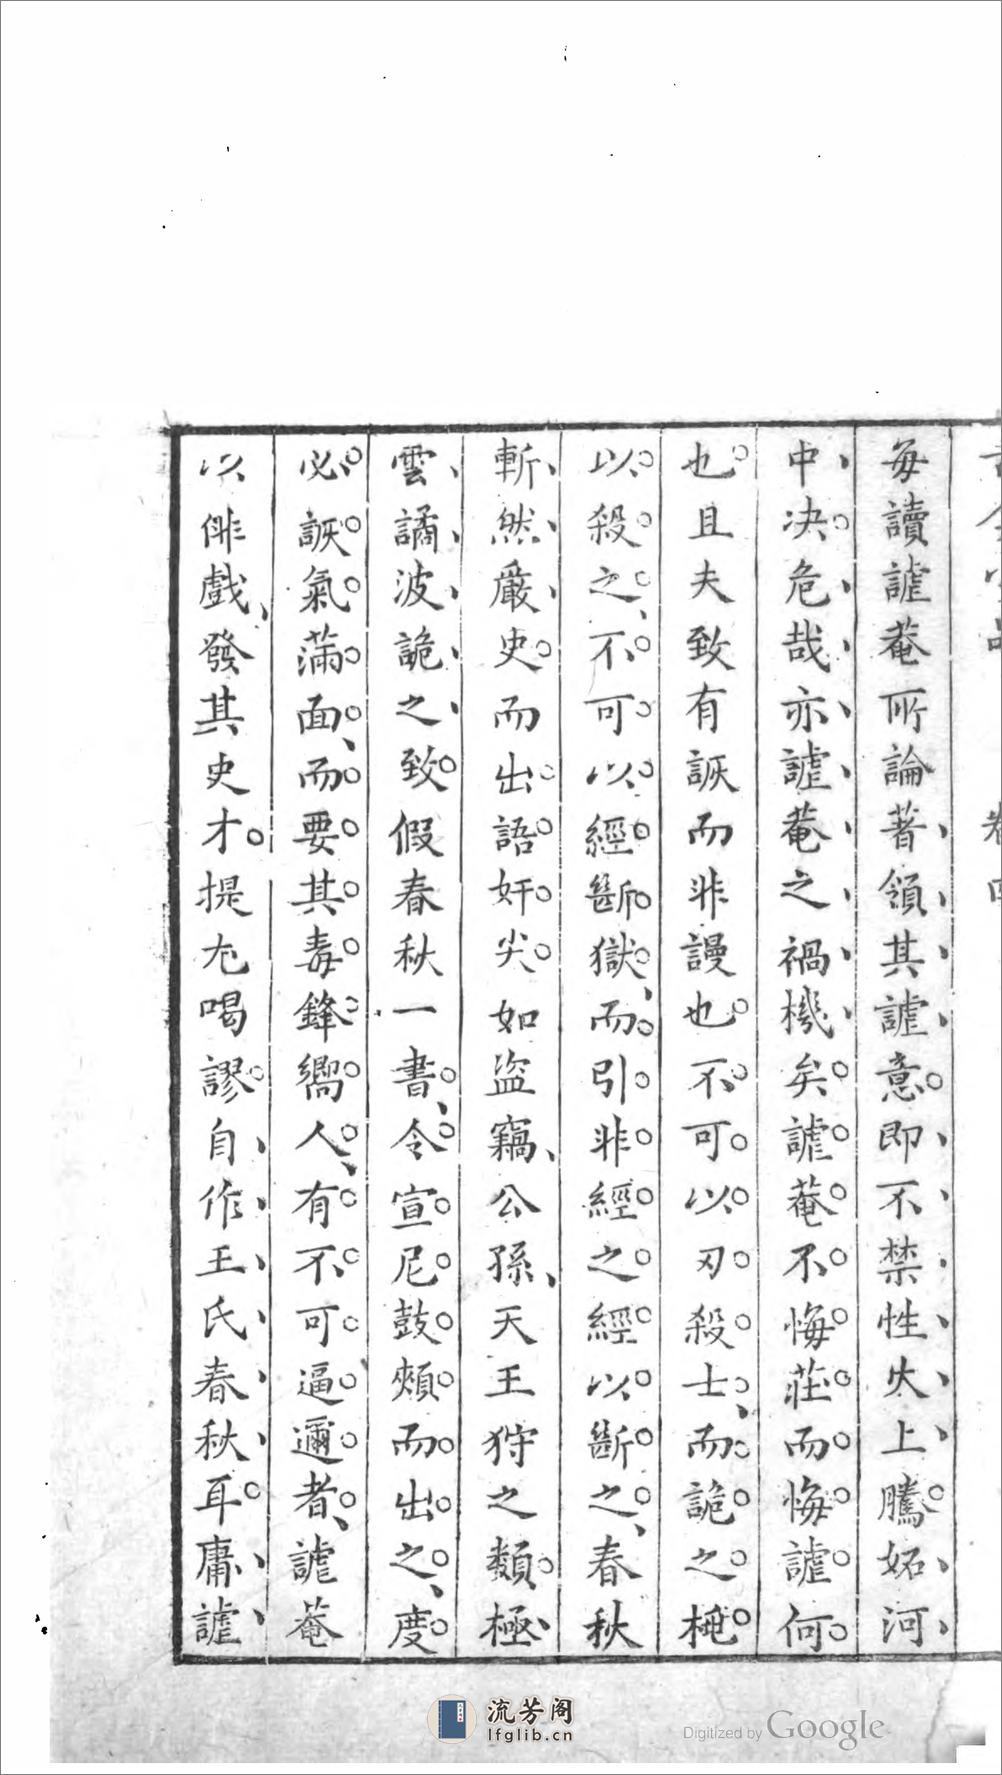 每讀謔菴所論著領其謔意即不禁性火上騰妬河
中决危哉亦謔菴之禍機矣謔菴不悔莊而悔謔何
也且夫致有詼而非謾也不可以刃殺士而詭之桃
以殺之不可以經斷獄而引非經之經以斷之春秋
斬然嚴史而出語奸尖如盜竊公孫天王狩之類極
雲譎波詭之致假春秋一書令宣尼鼓頰而出之度
必詼氣滿面而要其毒鋒嚮人有不可逼邇者謔菴
以俳戲發其史才提尢喝謬自作王氏春秋耳庸謔
卷四
流芳阁
lfglib.cn
Digitized by Google